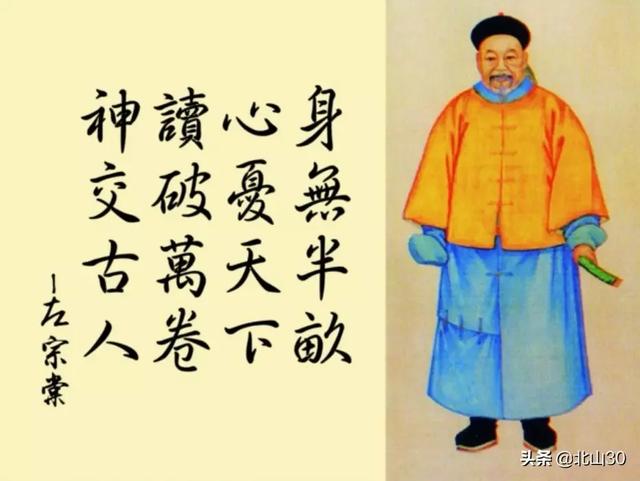 身無半畝
心憂天下
讀破萬卷
神交古人
-左宗棠
头条 @北山30